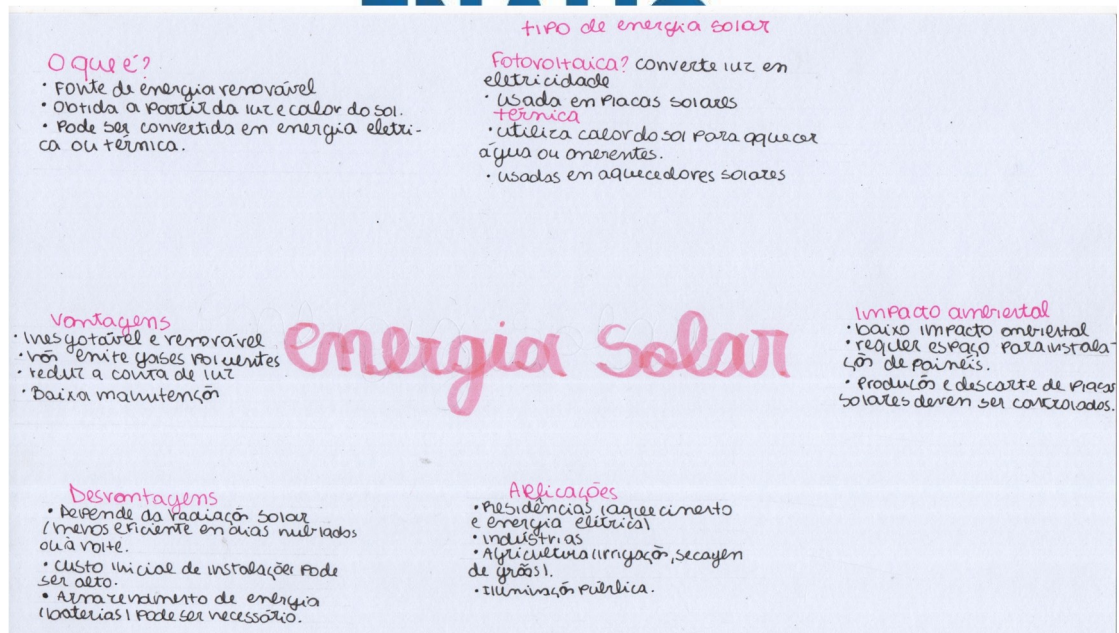 O que é?
• Fonte de energia renovável
• Obtida a partir da luz e calor do sol.
• Pode ser convertida em energia elétri-
ca ou térmica.
tipo de energia solar
Fotovoltaica? converte luz em
eletricidade
• usada em Placas solares
térmica
• utiliza calor do sol para aquecer
água ou
• usadas em aquecedores solares
Vantagens
• Inesgotável e renovável
• não emite gases poluentes
• reduz a conta de luz
• Baixa manutenção
energia solar
Impacto ambiental
• baixo impacto ambiental
• requer espaço para instala-
ção de painéis.
• Produção e descarte de placas
solares devem ser controlados.
Desvantagens
• Depende da radiação solar
(menos eficiente em dias nublados
ou à noite.
• custo inicial de instalações pode
ser alto.
• de energia
(baterias) pode ser necessário.
Aplicações
• Residências (aquecimento
e energia elétrica)
• indústrias
• Agricultura (irrigação, secagem
de grãos).
• Iluminação pública.